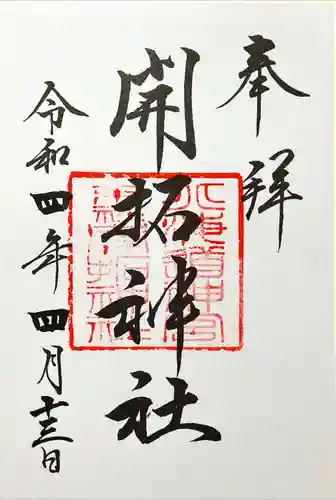 奉拝
開拓神社
令和四年四月十三日